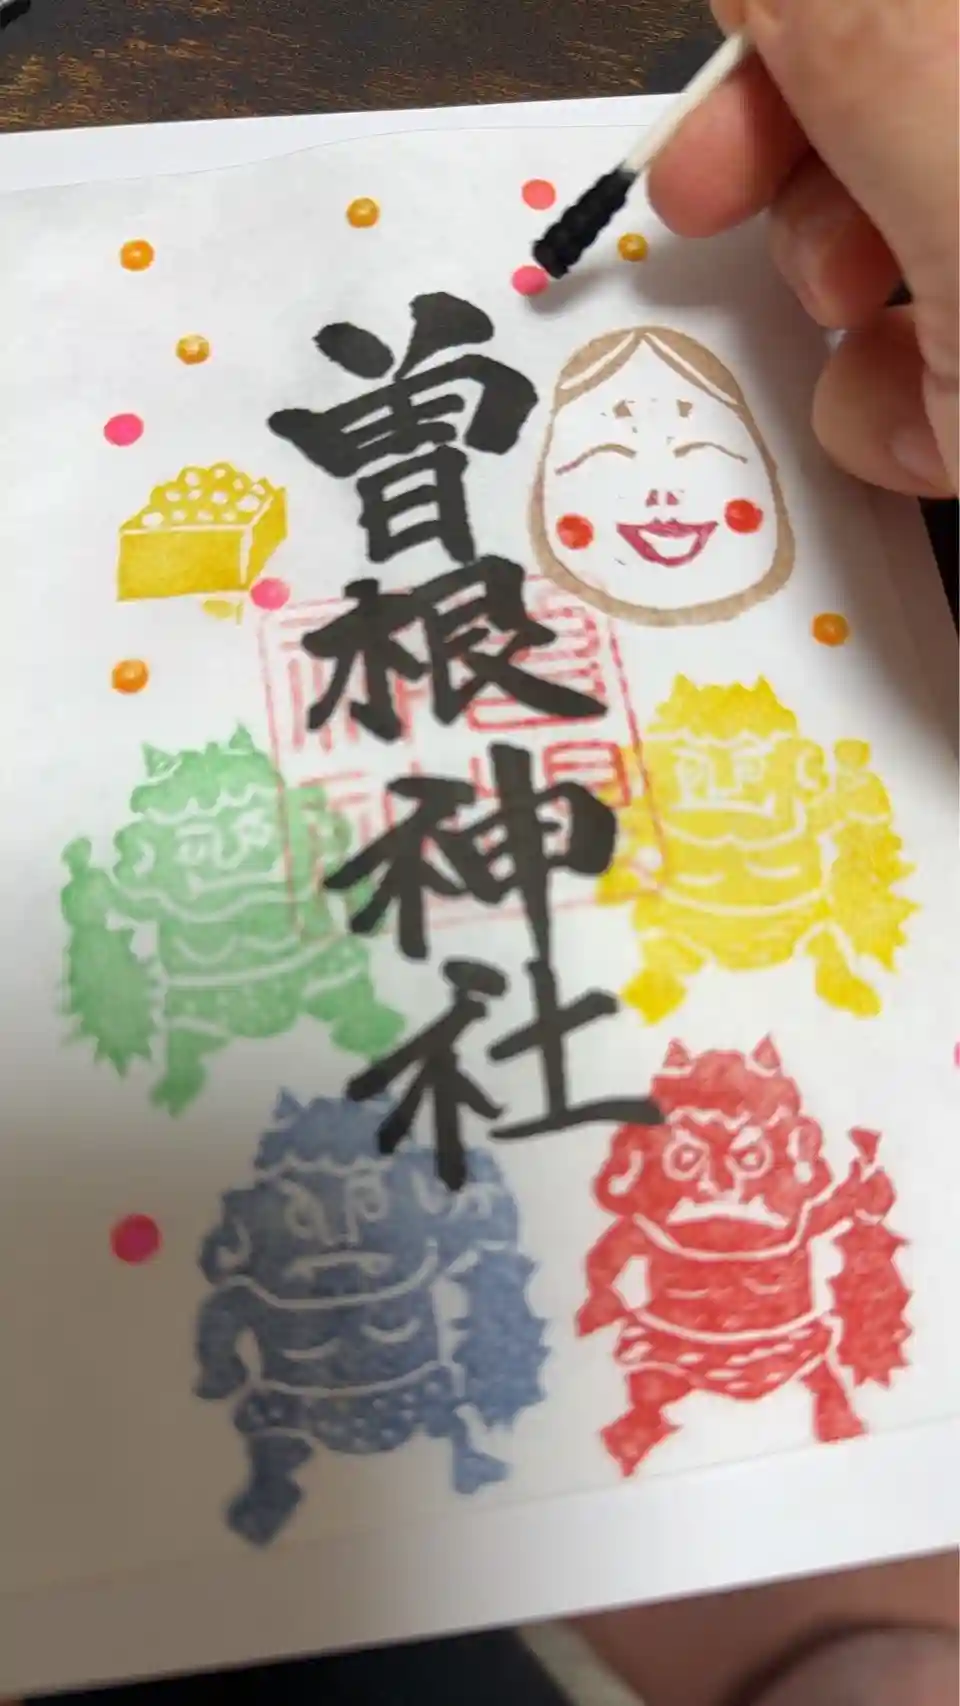 曽根神社